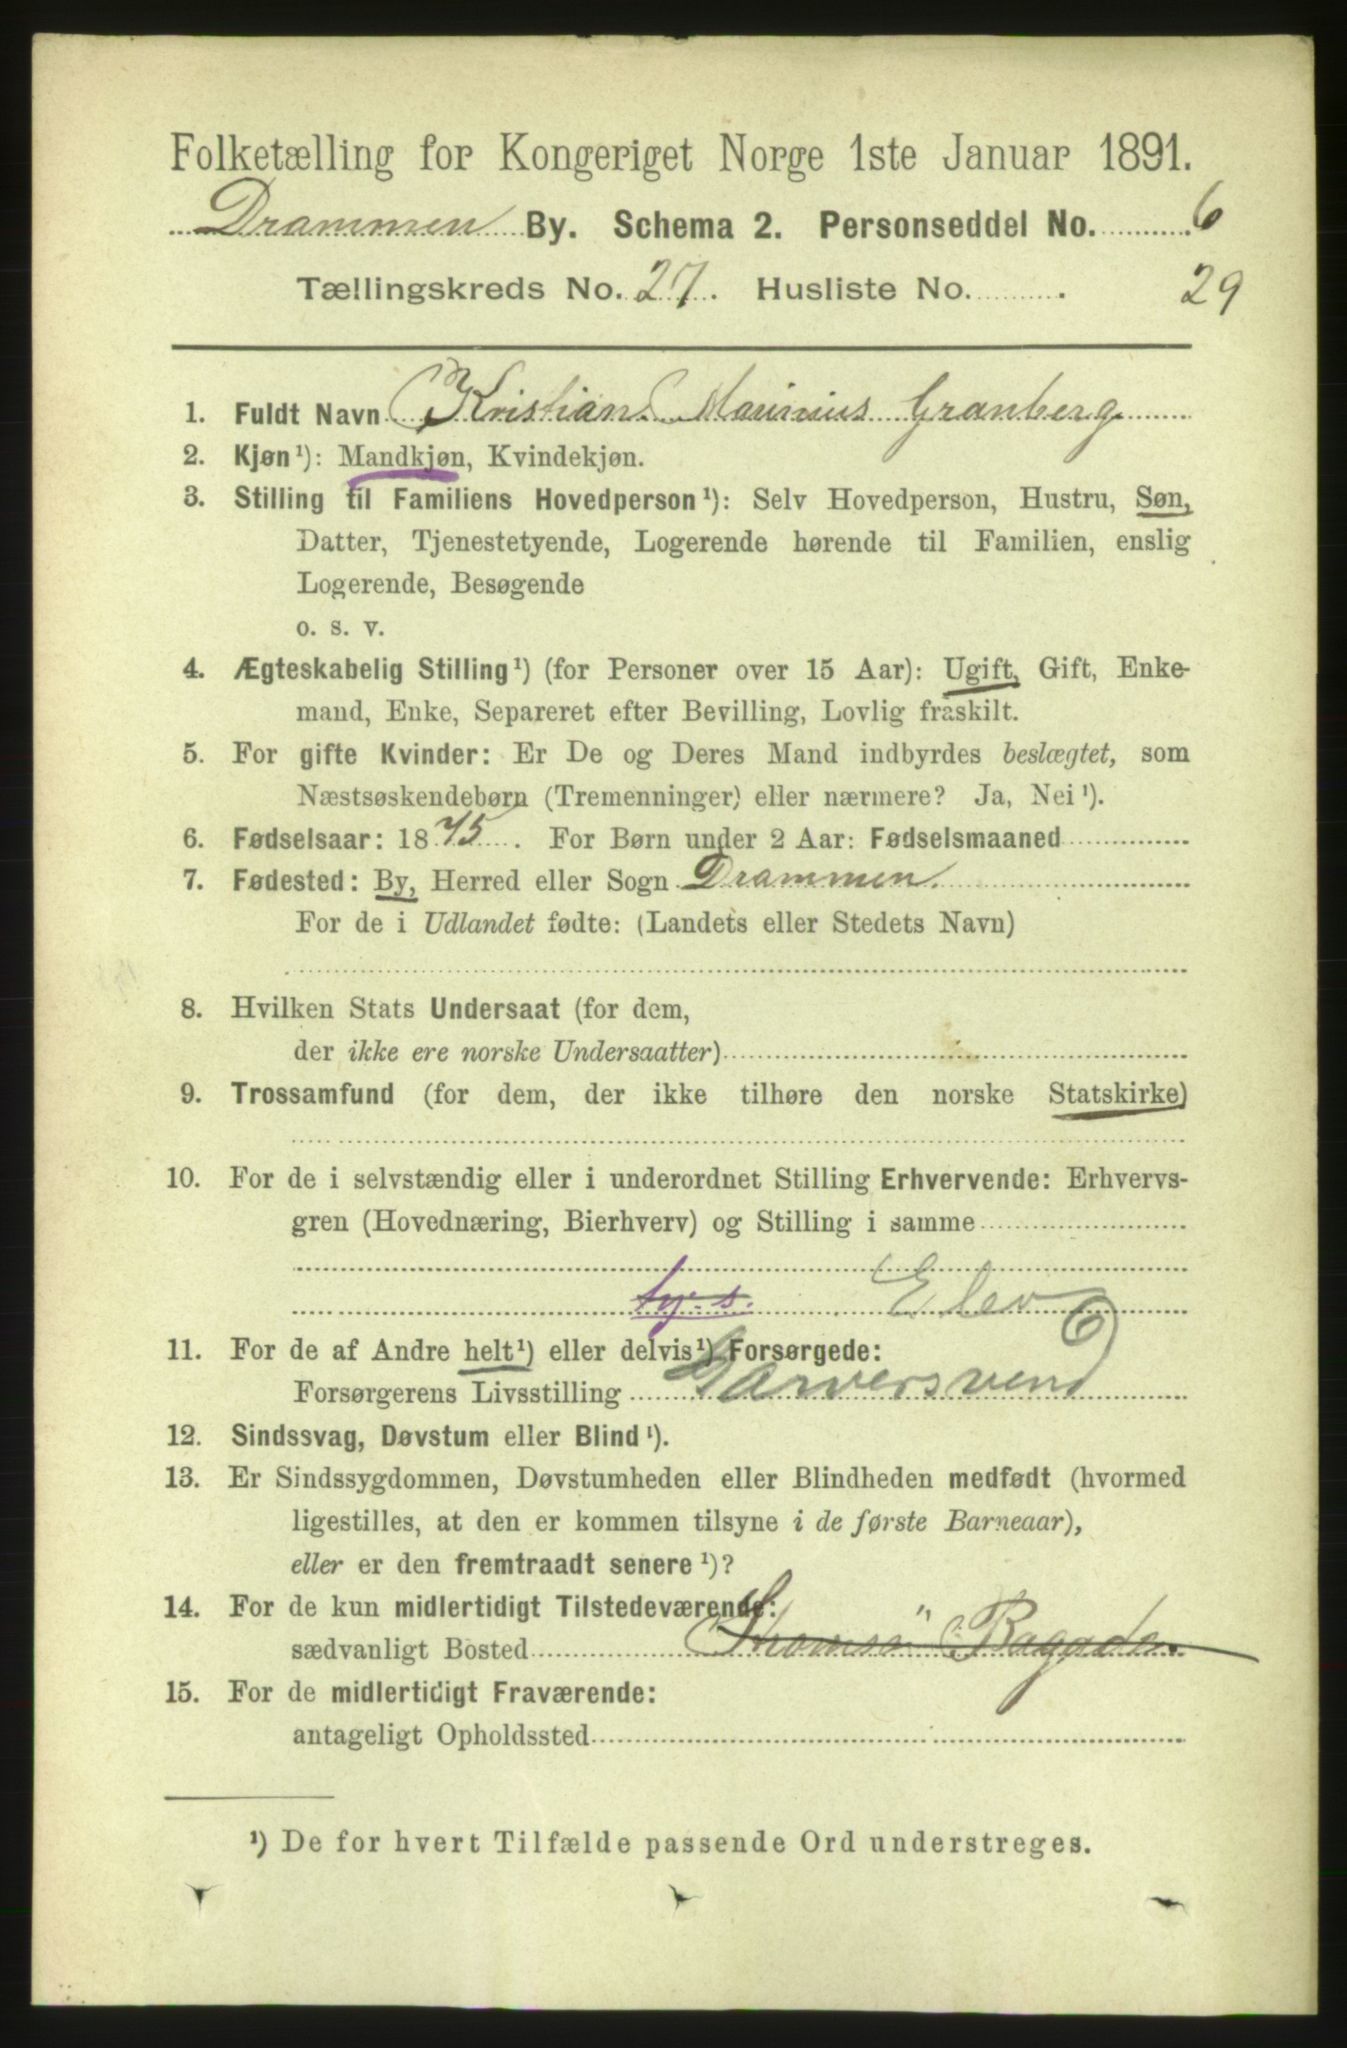 Folketælling for Kongeriget Norge 1ste Januar 1891.
Drammen By. Schema 2. Personseddel No. 6
Tællingskreds No. 27. Husliste No. 29
1. Fuldt Navn Kristian Marinius Granberg
2. Kjøn¹): Mandkjøn, Kvindekjøn.
3. Stilling til Familiens Hovedperson¹): Selv Hovedperson, Hustru, Søn,
Datter, Tjenestetyende, Logerende hørende til Familien, enslig
Logerende, Besøgende
o. s. v.
4. Ægteskabelig Stilling¹) (for Personer over 15 Aar): Ugift, Gift, Enke-
mand, Enke, Separeret efter Bevilling, Lovlig fraskilt.
5. For gifte Kvinder: Er De og Deres Mand indbyrdes beslægtet, som
Næstsøskendebørn (Tremenninger) eller nærmere? Ja, Nei¹).
6. Fødselsaar: 1875. For Børn under 2 Aar: Fødselsmaaned
7. Fødested: By, Herred eller Sogn Drammen.
For de i Udlandet fødte: (Landets eller Stedets Navn)
8. Hvilken Stats Undersaat (for dem,
der ikke ere norske Undersaatter)
9. Trossamfund (for dem, der ikke tilhøre den norske Statskirke)
10. For de i selvstændig eller i underordnet Stilling Erhvervende: Erhvervs-
gren (Hovednæring, Bierhverv) og Stilling i samme
ty. s. Elev
11. For de af Andre helt¹) eller delvis¹) Forsørgede:
Forsørgerens Livsstilling Garversvend
12. Sindssvag, Døvstum eller Blind¹).
13. Er Sindssygdommen, Døvstumheden eller Blindheden medfødt (hvormed
ligestilles, at den er kommen tilsyne i de første Barneaar),
eller er den fremtraadt senere¹)?
14. For de kun midlertidigt Tilstedeværende:
sædvanligt Bosted
15. For de midlertidigt Fraværende:
antageligt Opholdssted
¹) De for hvert Tilfælde passende Ord understreges.